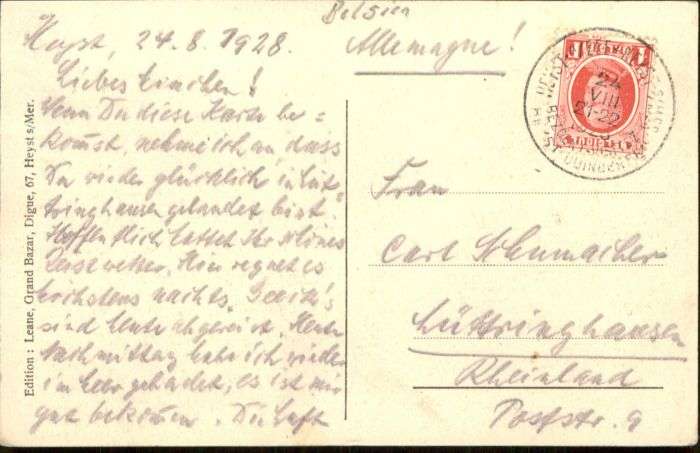 Belgien
Heyst, 24.8.1928.
Allemagne!
Liebes Linchen!
Wenn Du diese Karte be=
kommst, nehme ich an, dass
Du wieder glücklich in Lüt=
tringhausen gelandet bist.
Hoffentlich hattet Ihr schönes
Reisewetter. Hier regnet es
höchstens nachts.
sind heute abgereist. Heute
Nachmittag habe ich wieder
im Meer gebadet, es ist mir
gut bekommen. Die Luft
Frau
Carl Schumacher
Lüttringhausen
Rheinland
Poststr. 9
Edition : Leane, Grand Bazar, Digue, 67, Heyst s/Mer.
1F 1F
24
VIII
21-22
1928
DUINBERGEN